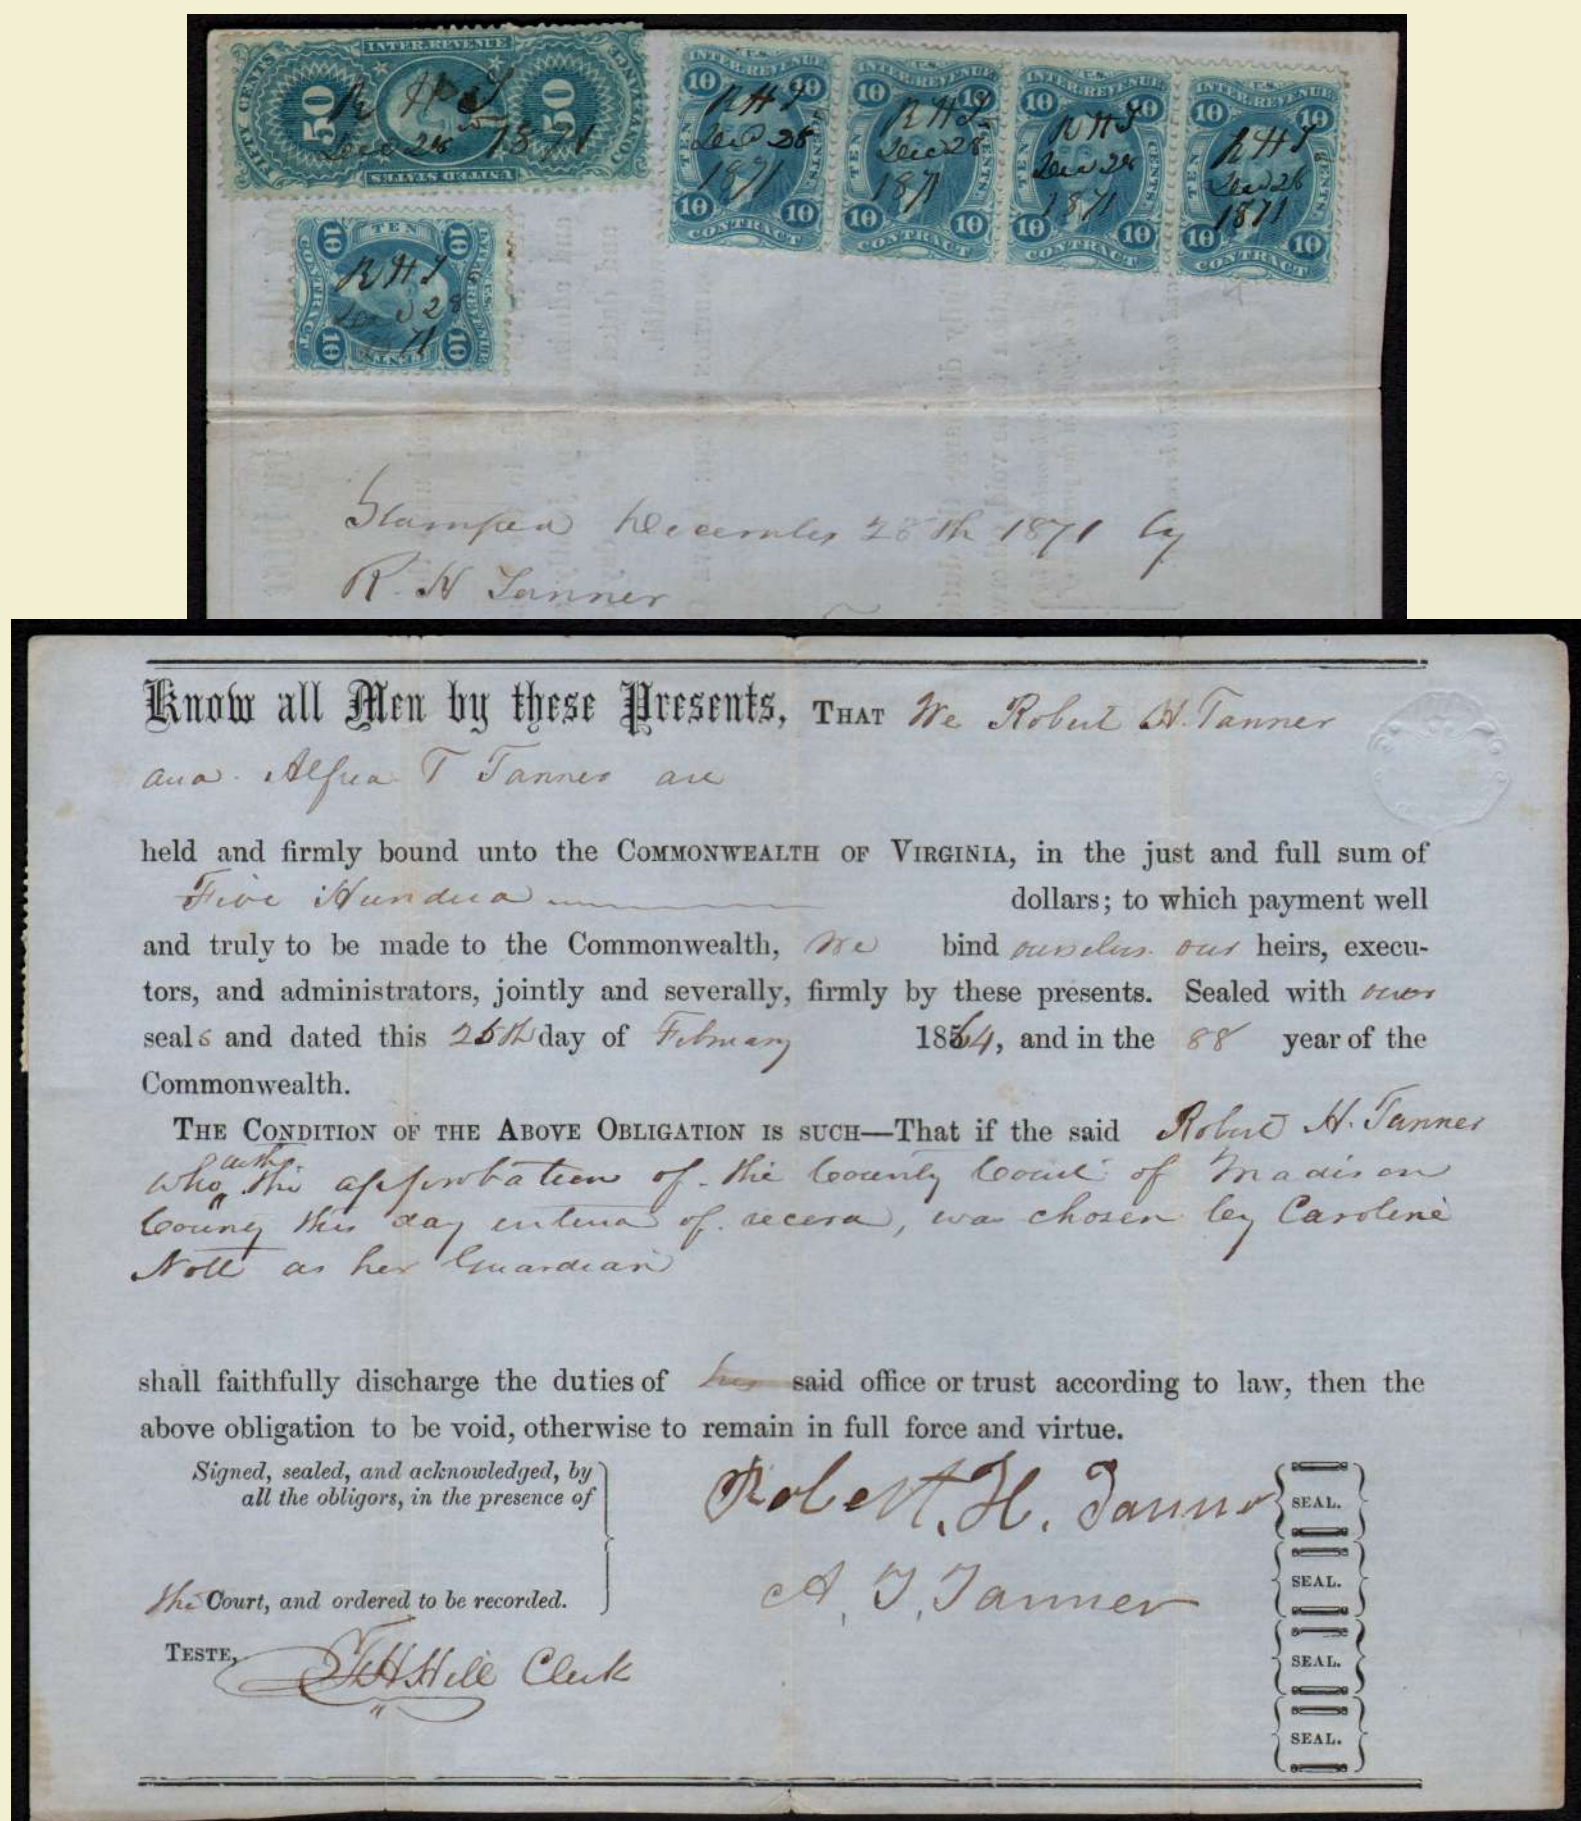 INTER. REVENUE
FIFTY CENTS
50
50
CONVEYANCE
UNITED STATES
R H T
Dec 28th 1871
U.S.
INTER. REVENUE
10 10
TEN CENTS
10 10
CONTRACT
R H T
Dec 28
1871
U.S.
INTER. REVENUE
10 10
TEN CENTS
10 10
CONTRACT
R H T
Dec 28
1871
U.S.
INTER. REVENUE
10 10
TEN CENTS
10 10
CONTRACT
R H T
Dec 28
1871
U.S.
INTER. REVENUE
10 10
TEN CENTS
10 10
CONTRACT
R H T
Dec 28
1871
U.S.
INTER. REVENUE
10 10
TEN CENTS
10 10
CONTRACT
R H T
Dec 28
71
Stamped December 28th 1871 by
R. H Tanner
Know all Men by these Presents, THAT We Robert H. Tanner
and Alfred T Tanner are
held and firmly bound unto the COMMONWEALTH OF VIRGINIA, in the just and full sum of
Five Hundred dollars; to which payment well
and truly to be made to the Commonwealth, We bind ourselves our heirs, execu-
tors, and administrators, jointly and severally, firmly by these presents. Sealed with our
seals and dated this 25th day of February 1864, and in the 88 year of the
Commonwealth.
THE CONDITION OF THE ABOVE OBLIGATION IS SUCH—That if the said Robert H. Tanner
who with the approbation of the County Court of Madison
County this day entered of record, was chosen by Caroline
Nott as her Guardian
shall faithfully discharge the duties of his said office or trust according to law, then the
above obligation to be void, otherwise to remain in full force and virtue.
Signed, sealed, and acknowledged, by
all the obligors, in the presence of
the Court, and ordered to be recorded.
Robert. H. Tanner SEAL.
A. T. Tanner SEAL.
SEAL.
SEAL.
TESTE, F H Hill Clerk